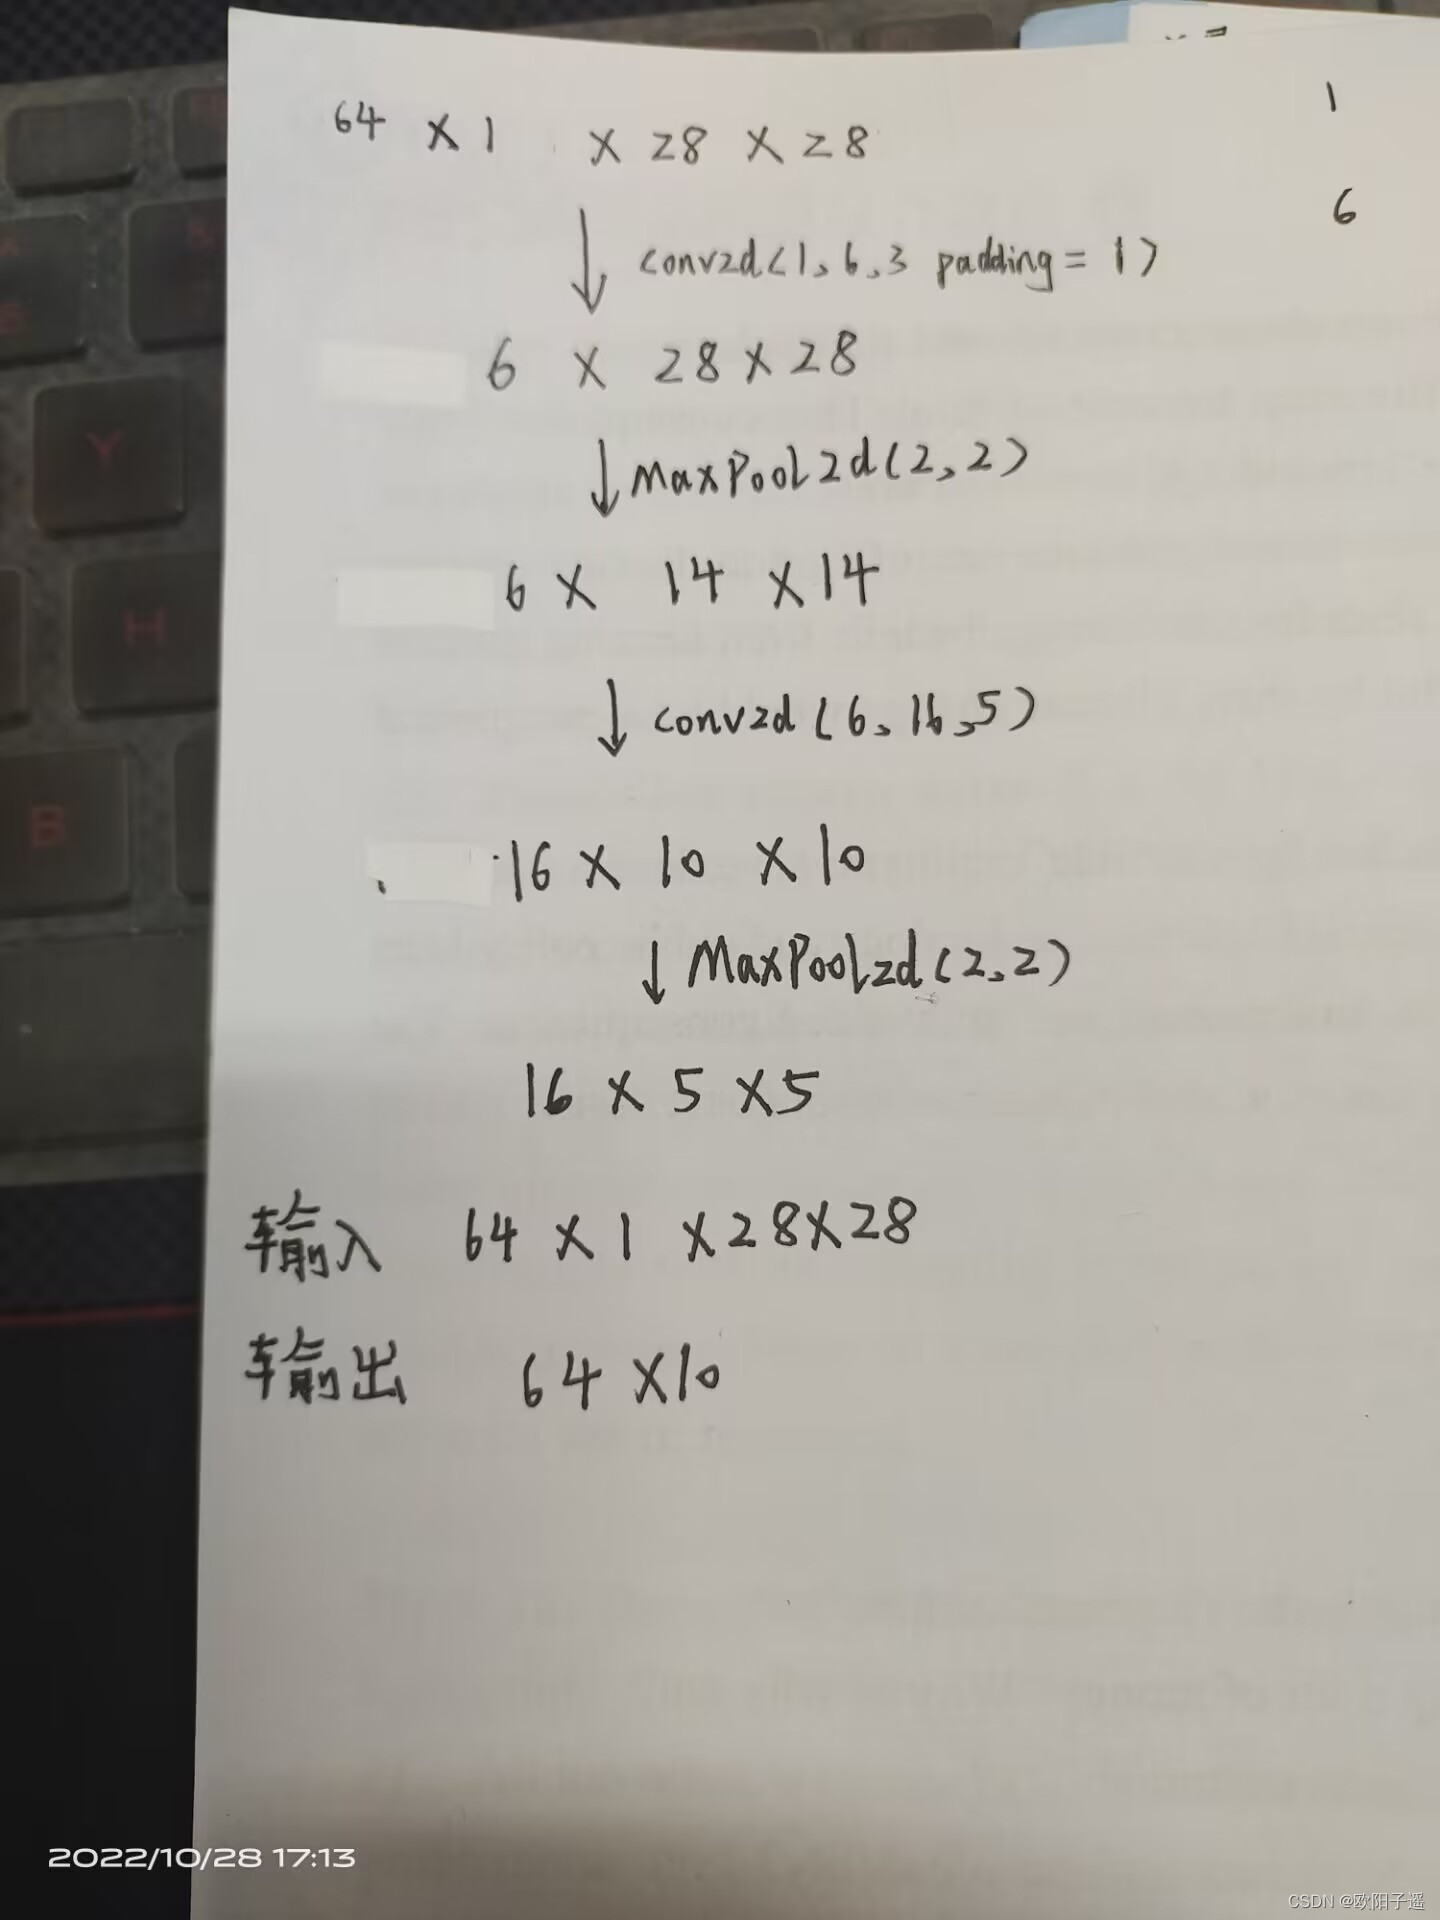 64 × 1 × 28 × 28
1
6
conv2d(1,6,3 padding=1)
6 × 28 × 28
MaxPool2d(2,2)
6 × 14 × 14
conv2d(6,16,5)
16 × 10 × 10
MaxPool2d(2,2)
16 × 5 × 5
输入 64 × 1 × 28 × 28
输出 64 × 10
Y
H
B
2022/10/28 17:13
CSDN @欧阳子遥